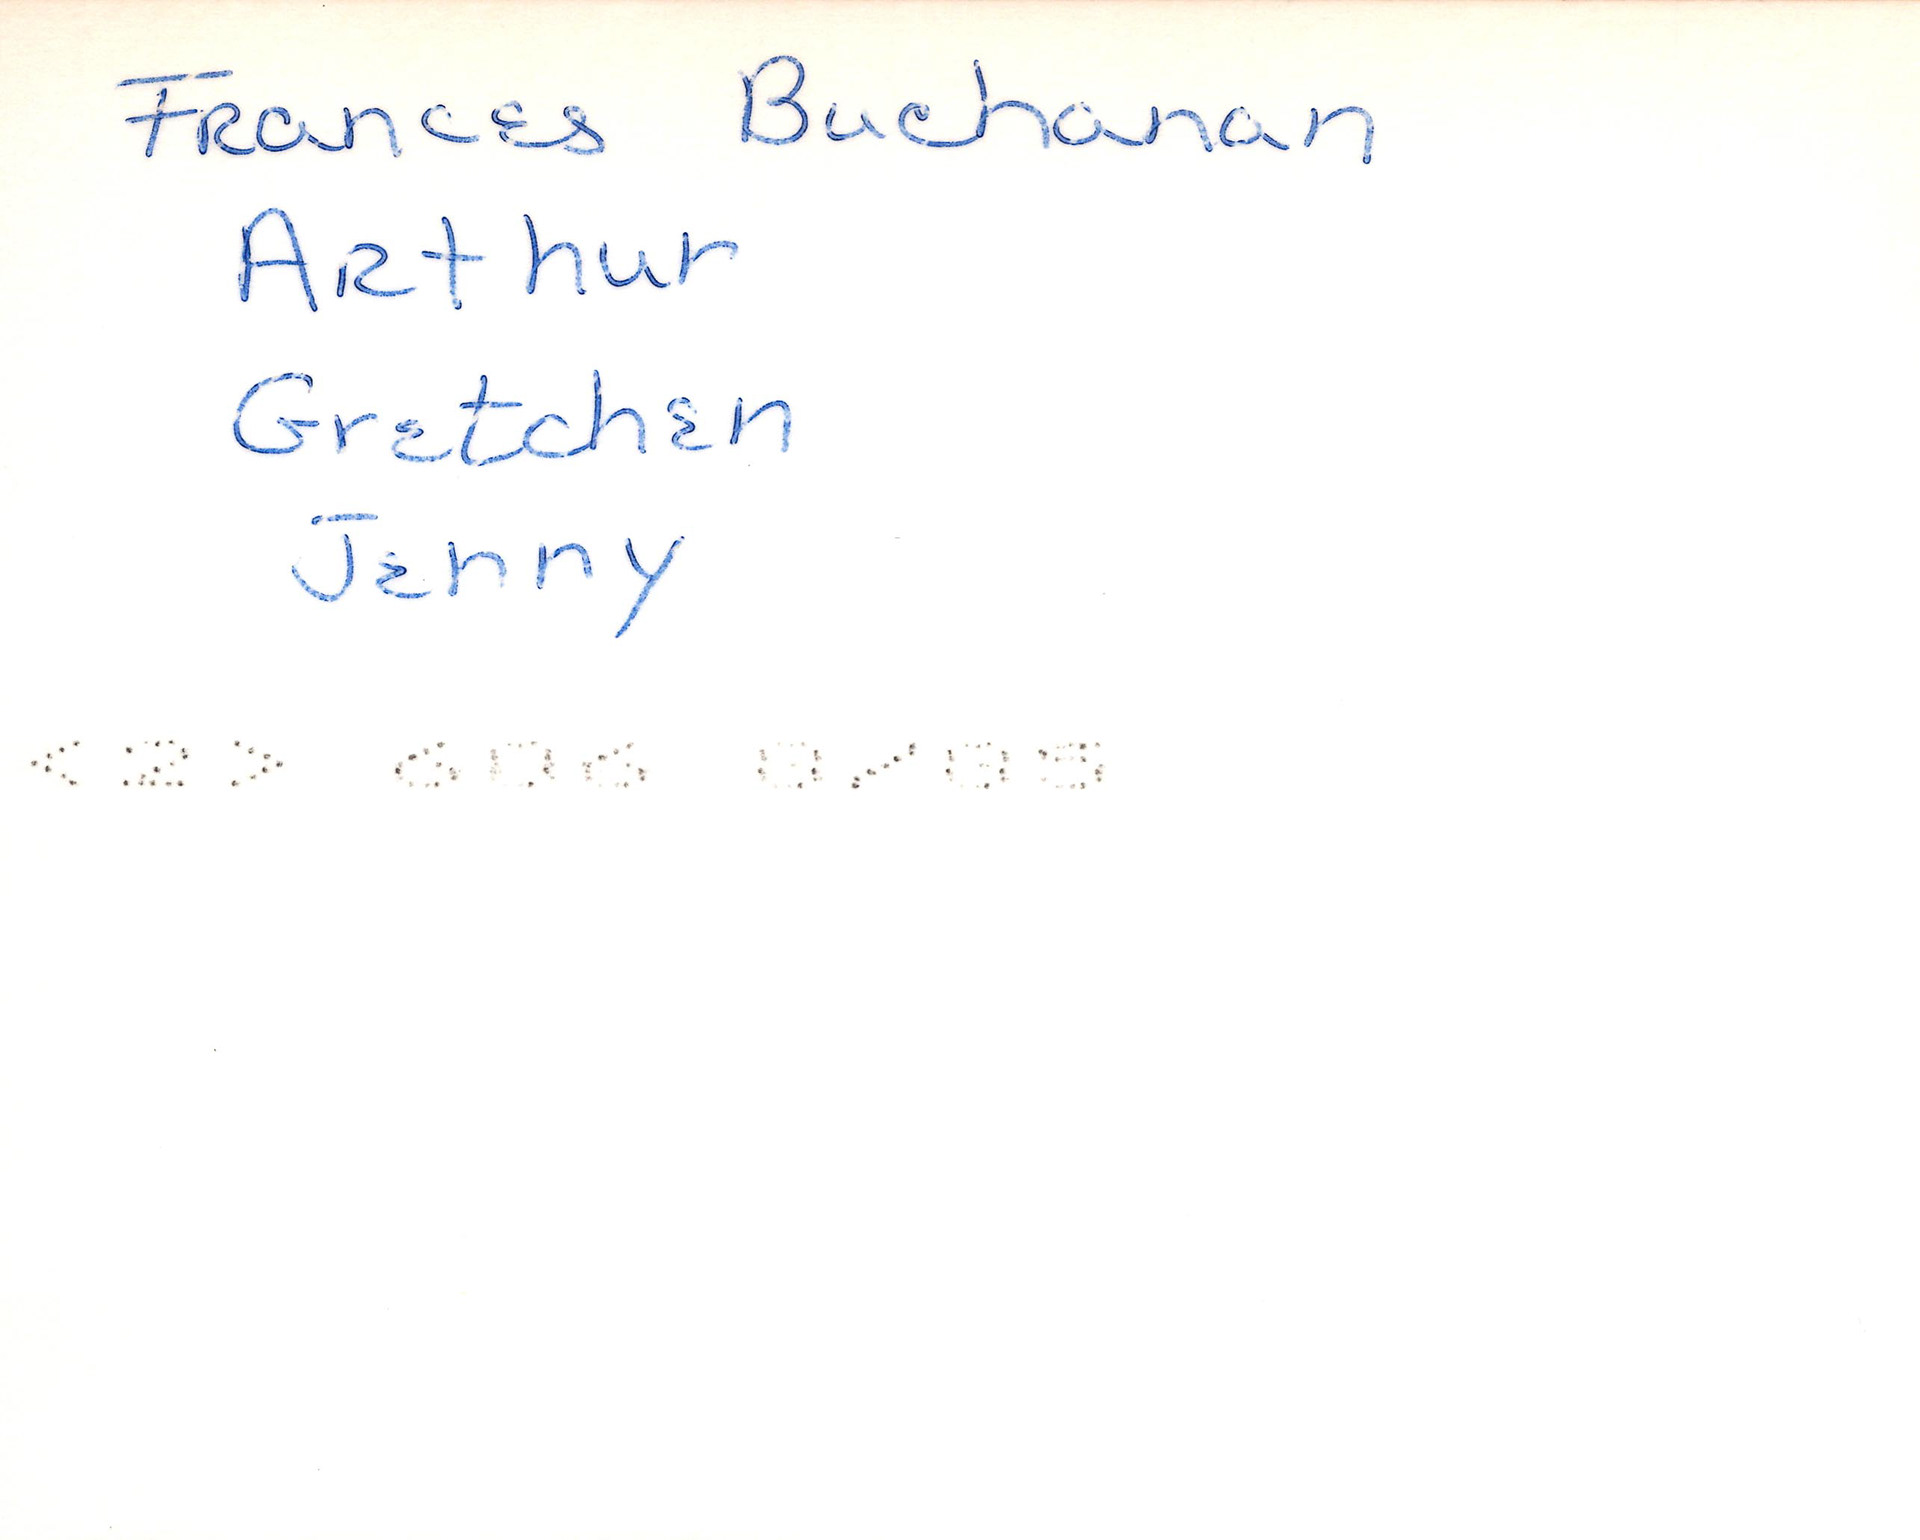 Frances Buchanan
Arthur
Gretchen
Jenny
<2>